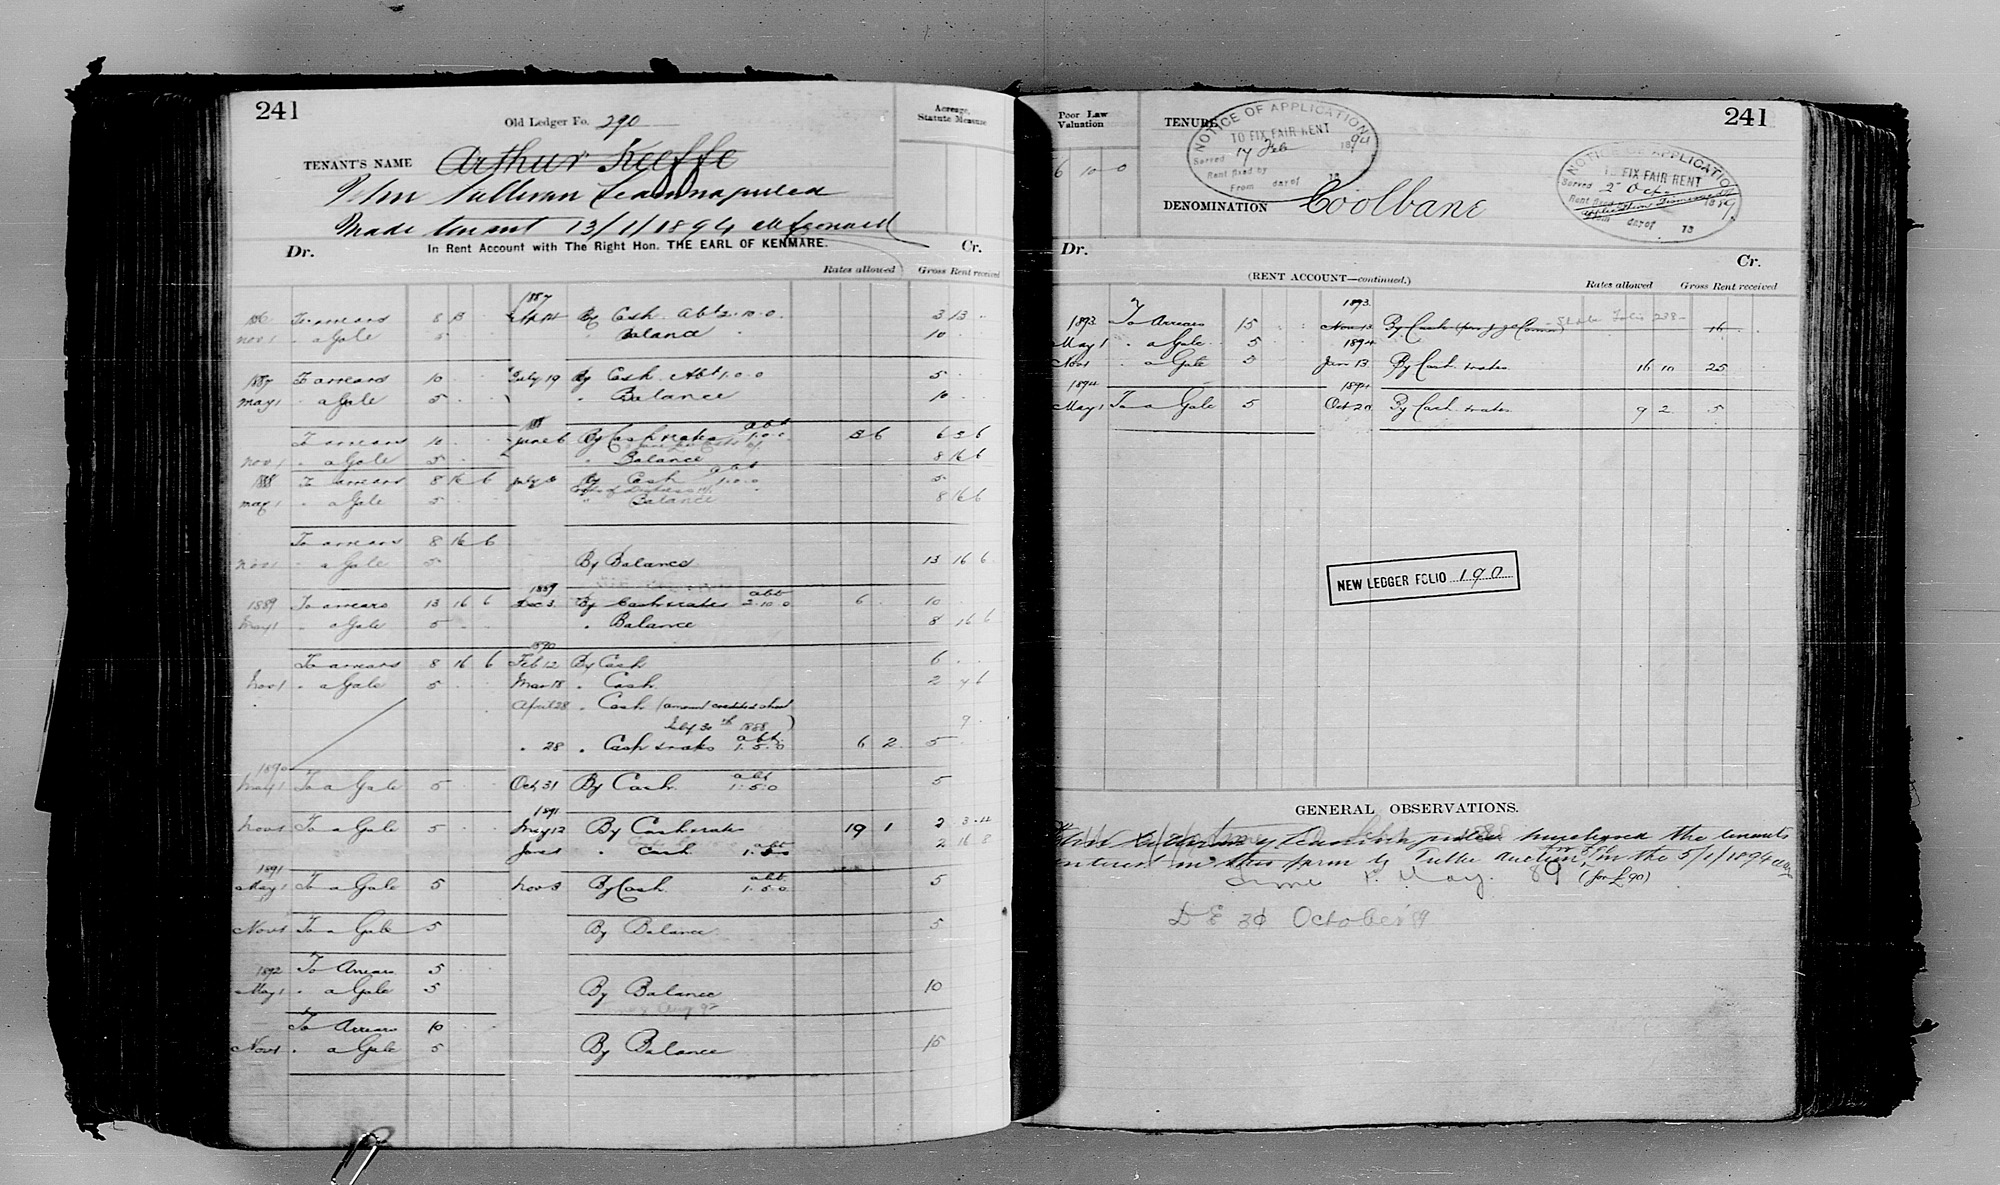 241
Old Ledger Fo. 290
Acreage, Statute Measure
TENANT'S NAME Arthur Keeffe
Sullivan
Made tenant 13/1/1894
Dr. In Rent Account with The Right Hon. THE EARL OF KENMARE. Cr.
Rates allowed Gross Rent received
1887
1886 To arrears 8 13 By Cash Abt 2.10.0. 3 13
Nov 1 " a Gale 5 Balance 10
1887 To arrears 10 July 19 By Cash Abt 1.0.0 5
May 1 a Gale 5 " Balance 10
To arrears 10 June 6 By Cash & rates abt 1.0.0 3 6 6 3 6
Nov 1 " a Gale 5 " Balance 8 16 6
1888 To arrears 8 16 6 July By Cash abt 1.0.0 5
May 1 " a Gale 5 " Balance 8 16 6
To arrears 8 16 6
Nov 1 " a Gale 5 By Balance 13 16 6
1889
1889 To arrears 13 16 6 Dec 3 By Cash & rates abt 2.10.0 6 10
May 1 " a Gale 5 " Balance 8 16 6
1890
To arrears 8 16 6 Feb 12 By Cash 6
Nov 1 " a Gale 5 Mar 18 " Cash 2 7 6
April 28 " Cash (amount credited short
July 30th 1888) 9
" 28 " Cash & rates abt 1.5.0 6 2 5
1890
May 1 To a Gale 5 Oct 31 By Cash abt 1.5.0 5
1891
Nov 1 To a Gale 5 May 12 By Cash & rates 19 1 2 3 4
June " Cash abt 1.5.0 2 16 8
1891
May 1 To a Gale 5 Nov 3 By Cash abt 1.5.0 5
Nov 1 To a Gale 5 By Balance 5
1892 To Arrears 5
May 1 " a Gale 5 By Balance 10
To Arrears 10
Nov 1 " a Gale 5 By Balance 15
Poor Law Valuation
6 10 0
TENURE
241
NOTICE OF APPLICATION
TO FIX FAIR RENT
Served 17 Feb 1894
Rent fixed by
From day of 18
NOTICE OF APPLICATION
TO FIX FAIR RENT
Served 2 Oct 1889
Rent fixed by
Application Dismissed
day of 18
DENOMINATION Coolbane
Dr. Cr.
(RENT ACCOUNT—continued.)
Rates allowed Gross Rent received
1893
1893 To Arrears 15 Nov 13 By Cash 16
May 1 " a Gale 5 1894
Nov 1 " a Gale 5 Jan 13 By Cash & rates 16 10 25
1894 1894
May 1 To a Gale 5 Oct 20 By Cash & rates 9 2 5
NEW LEDGER FOLIO 190
GENERAL OBSERVATIONS.
purchased the tenants
interest in this farm by Public Auction, on the 5/1/1894
May 89 (for £90)
October 89